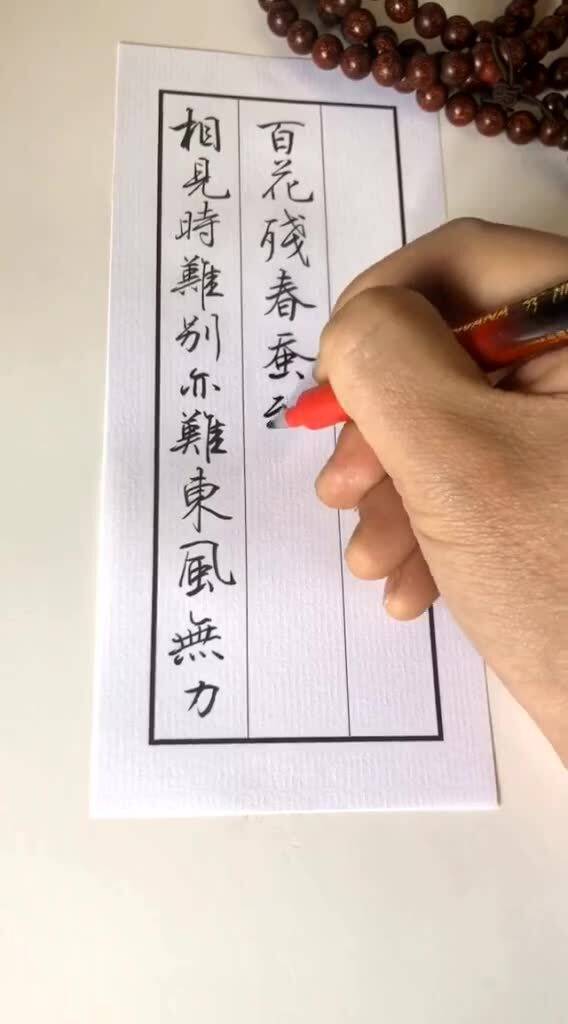 相見時難別亦難東風無力
百花殘春蚕